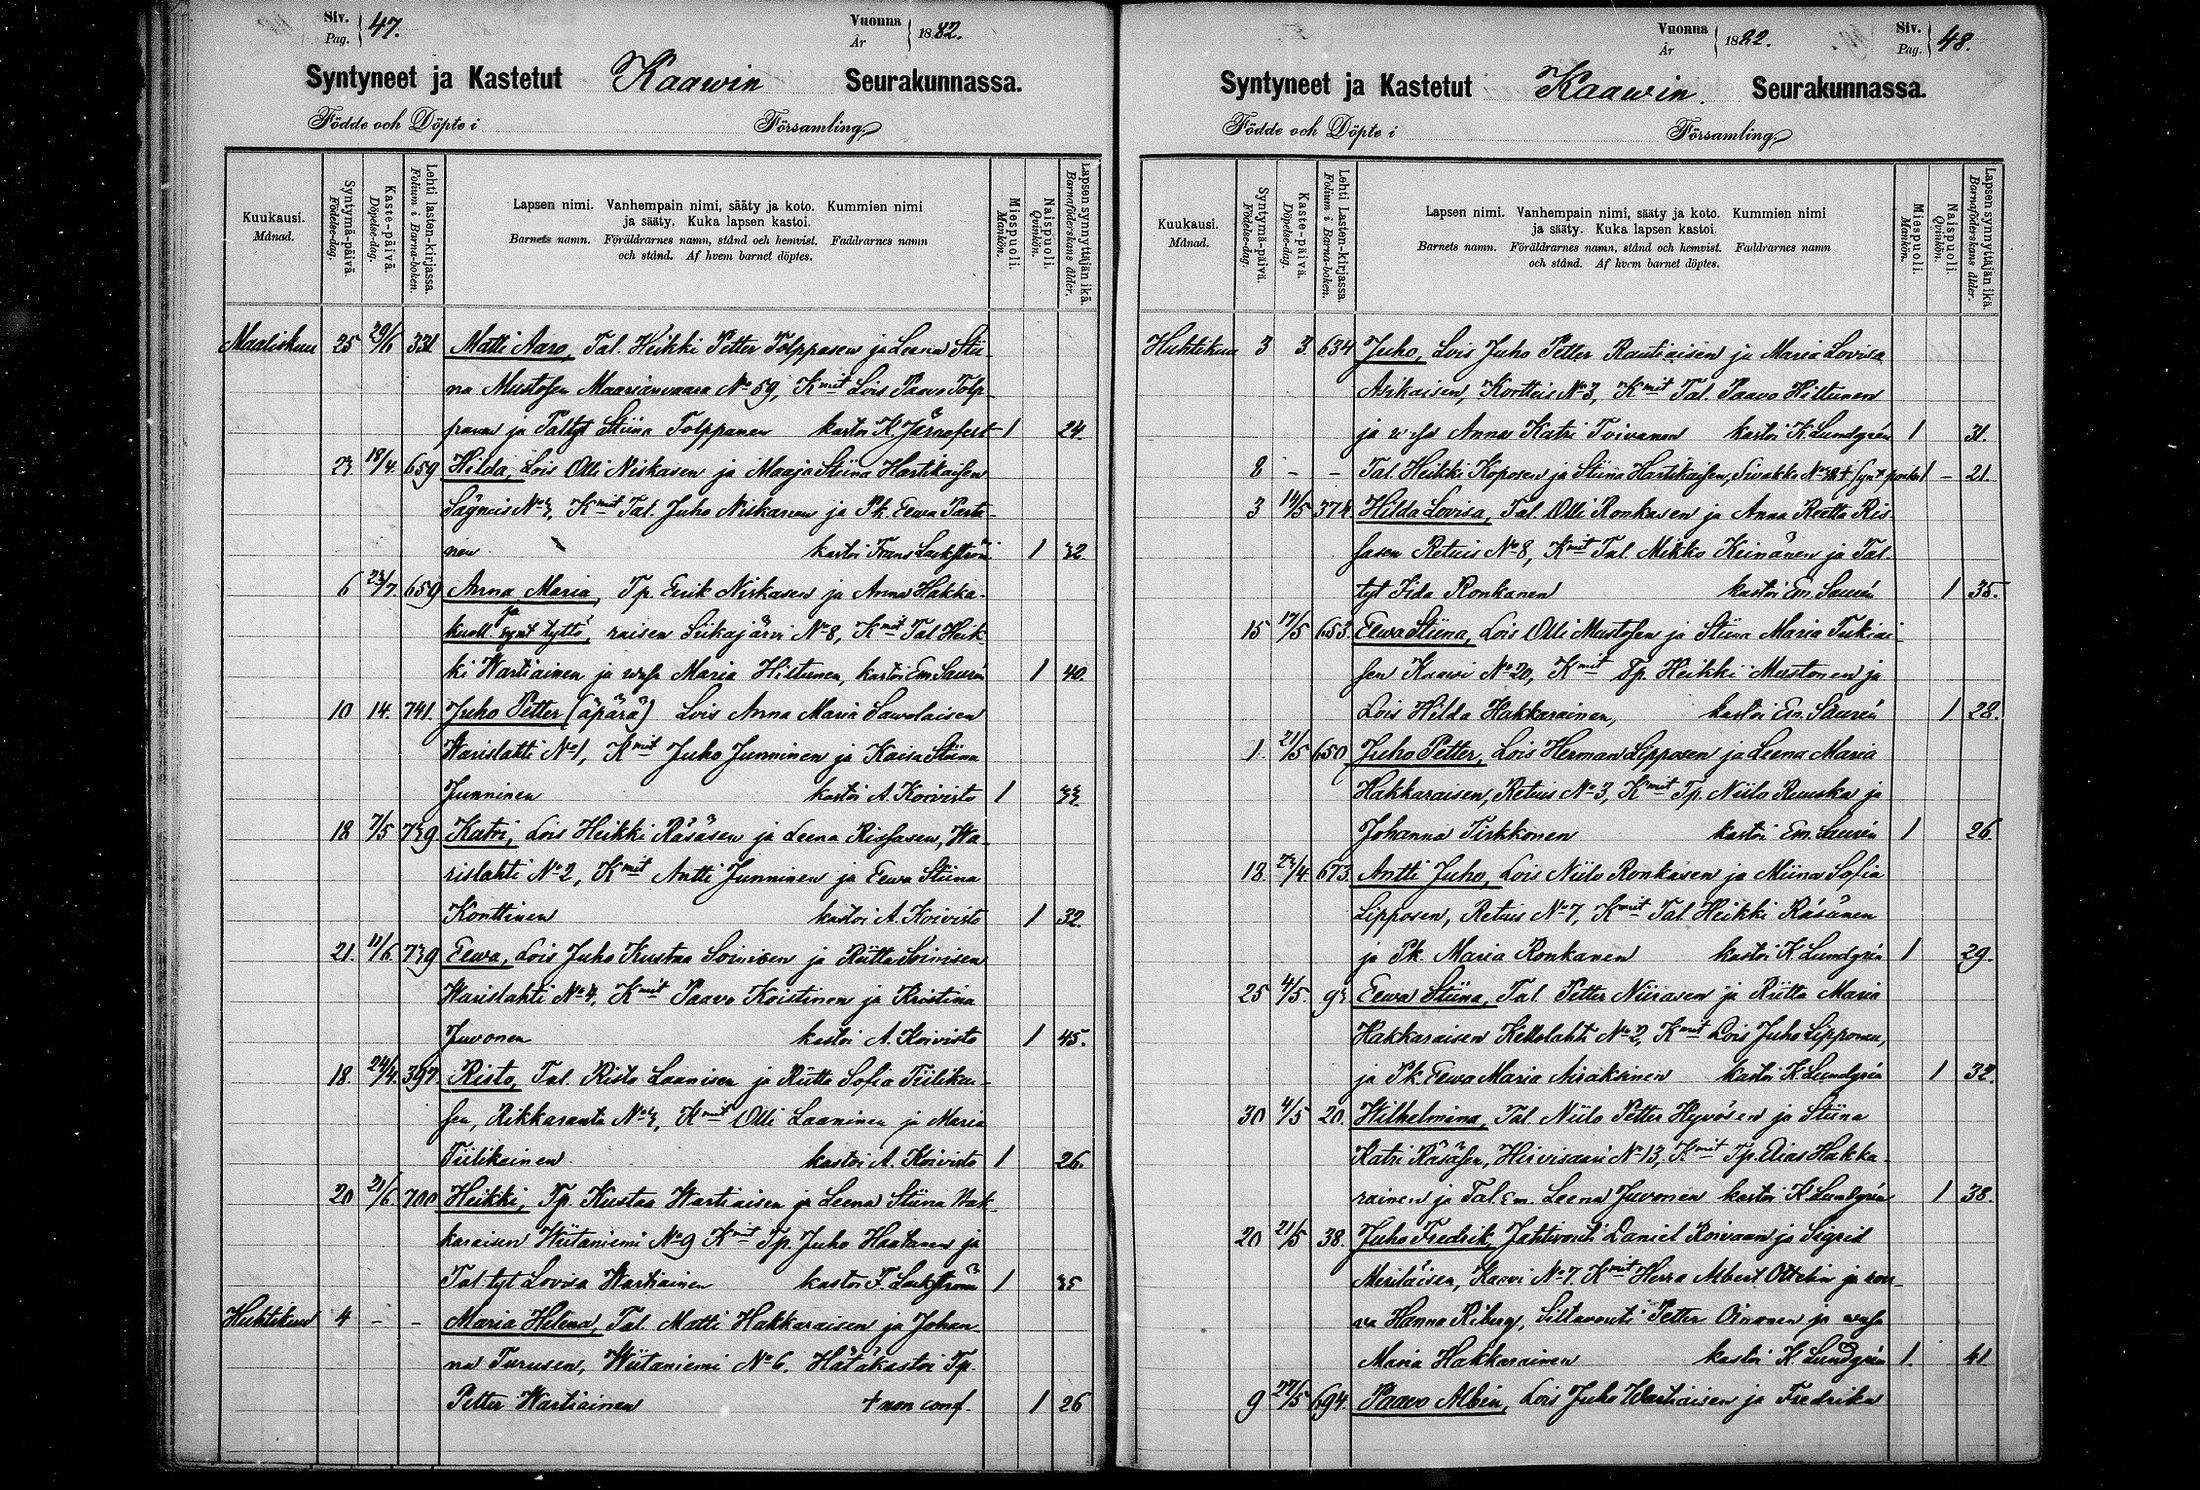 Siv. Pag. 47.
Vuonna År 1882.
Syntyneet ja Kastetut Kaawin Seurakunnassa.
Födde och Döpte i Församling
Kuukausi. Månad.
Syntymä-päivä. Födelse-dag.
Kaste-päivä. Döpelse-dag.
Lehti lasten-kirjassa. Folium i Barna-boken.
Lapsen nimi. Vanhempain nimi, sääty ja koto. Kummien nimi
ja sääty. Kuka lapsen kastoi.
Barnets namn. Föräldrarnes namn, stånd och hemvist. Faddrarnes namn
och stånd. Af hvem barnet döptes.
Miespuoli. Mankön.
Naispuoli. Qvinkön.
Lapsen synnyttäjän ikä. Barnaföderskans ålder.
Maaliskuu 25 29/6 331 Matti Aaro, Tal. Heikki Petter Tolppasen ja Leena Stii
na Mustosen Maarianvaara No 59, Kmit Lois Paavo Tolp
panen ja Taltyt Stiina Tolppanen kastoi K. Järnefelt 1 24.
23 18/4. 659 Hilda, Lois Olli Niskasen ja Maaja Stiina Hartikaisen
Sägnuis No 3, Kmit Tal. Juho Niskanen ja Pk. Eewa Parta-
nen kastoi Frans Lackström 1 32
6 23/7 659 Anna Maria, Tp. Erik Niskasen ja Anna Hakka-
ja
kuoll. synt tyttö, raisen Siikajärvi No 8, Kmit Tal Heik-
ki Wartiainen ja whs Maria Hiltunen, kastoi Em. Saurén 1 40.
10 14. 741. Juho Petter (äpärä) Lois Anna Maria Sawolaisen
Warislahti No 1, Kmit Juho Junninen ja Kaisa Stiina
Junninen kastoi A. Koivisto 1 33
18 7/5 739 Katri, Lois Heikki Räsäsen ja Leena Rissasen, Wa-
rislahti No 2, Kmit Antti Junninen ja Eewa Stiina
Konttinen kastoi A. Koivisto 1 32.
21. 11/6. 739 Eewa, Lois Juho Kustaa Soinisen ja Riitta Soinisen
Warislahti No 4, Kmit Paavo Koistinen ja Kristina
Juvonen kastoi A. Koivisto 1 45.
18. 24/4. 397 Risto, Tal. Risto Laanisen ja Riitta Sofia Tiilikai-
sen, Rikkaranta No 3, Kmit Olli Laaninen ja Maria
Tiilikainen kastoi A. Koivisto 1 26.
20 21/6. 700 Heikki, Tp. Kustaa Wartiaisen ja Leena Stiina Hak-
karaisen Wiitaniemi No 9 Kmit Tp. Juho Haatanen ja
Tal. tyt Lovisa Wartiainen kastoi F. Lackström 1 35
Huhtikuu 4 - - Maria Helena, Tal. Matti Hakkaraisen ja Johan-
na Turusen, Wiitaniemi No 6. Hätäkastoi Tp.
Petter Wartiainen † non conf. 1 26
Vuonna År 1882.
Siv. Pag. 48.
Syntyneet ja Kastetut Kaawin. Seurakunnassa.
Födde och Döpte i Församling
Kuukausi. Månad.
Syntymä-päivä. Födelse-dag.
Kaste-päivä. Döpelse-dag.
Lehti Lasten-kirjassa. Folium i Barna-boken.
Lapsen nimi. Vanhempain nimi, sääty ja koto. Kummien nimi
ja sääty. Kuka lapsen kastoi.
Barnets namn. Föräldrarnes namn, stånd och hemvist. Faddrarnes namn
och stånd. Af hvem barnet döptes.
Miespuoli. Mankön.
Naispuoli. Qvinkön.
Lapsen synnyttäjän ikä. Barnaföderskans ålder.
Huhtikuu 3 3. 634 Juho, Lois Juho Petter Rautiaisen ja Maria Lovisa
Asikaisen, Kortteis No 3, Kmit Tal. Paavo Hiltunen
ja Anna Katri Toivanen kastoi K. Lundgrén 1 31.
8 - - Tal. Heikki Koposen ja Stiina Hartikaisen, Sivakka No † Synt. poika 1 - 21.
3 14/5 374 Hilda Lovisa, Tal. Olli Ronkasen ja Anna Reetta Ris-
sasen Retuis No 8, Kmit Tal. Mikko Keinänen ja Tal.
tyt Iida Ronkanen kastoi Em. Saurén 1 35.
15 17/5 653. Eewa Stiina, Lois Olli Mustosen ja Stiina Maria Tukiai-
sen Kaawi No 20, Kmit Tp. Heikki Mustonen ja
Lois Hilda Hakkarainen, kastoi Em. Saurén 1 28.
1. 21/5 650. Juho Petter, Lois Herman Lipposen ja Leena Maria
Hakkaraisen, Retuis No 3, Kmit Tp. Niilo Ruuska ja
Johanna Tirkkonen kastoi Em. Saurén 1 26
18. 23/4. 673. Antti Juho, Lois Niilo Ronkasen ja Miina Sofia
Lipposen, Retuis No 7, Kmit Tal. Heikki Räsänen
ja Pk. Maria Ronkanen kastoi K. Lundgrén 1 29.
25 4/5. 93 Eewa Stiina, Tal. Petter Niirasen ja Riitta Maria
Hakkaraisen Kellolahti No 2, Kmit Lois Juho Lipponen,
ja Pk. Eewa Maria Airaksinen kastoi K. Lundgrén 1 32.
30 4/5 20. Wilhelmina, Tal. Niilo Petter Hyvösen ja Stiina
Katri Räsäsen, Hirvisaari No 13, Kmit Tp. Elias Hakka-
rainen ja Tal. Em. Leena Juvonen kastoi K. Lundgrén 1 38.
20 21/5 38. Juho Fredrik, Jahtivouti Daniel Roivaan ja Sigrid
Meriläisen, Kaavi No 7. Kmit Herra Albert Ottelin ja rou-
va Hanna Riberg, Siltavouti Petter Oinonen ja whs
Maria Hakkarainen kastoi K. Lundgrén 1. 41
9 27/5 694. Paavo Albin, Lois Juho Wartiaisen ja Fredrika